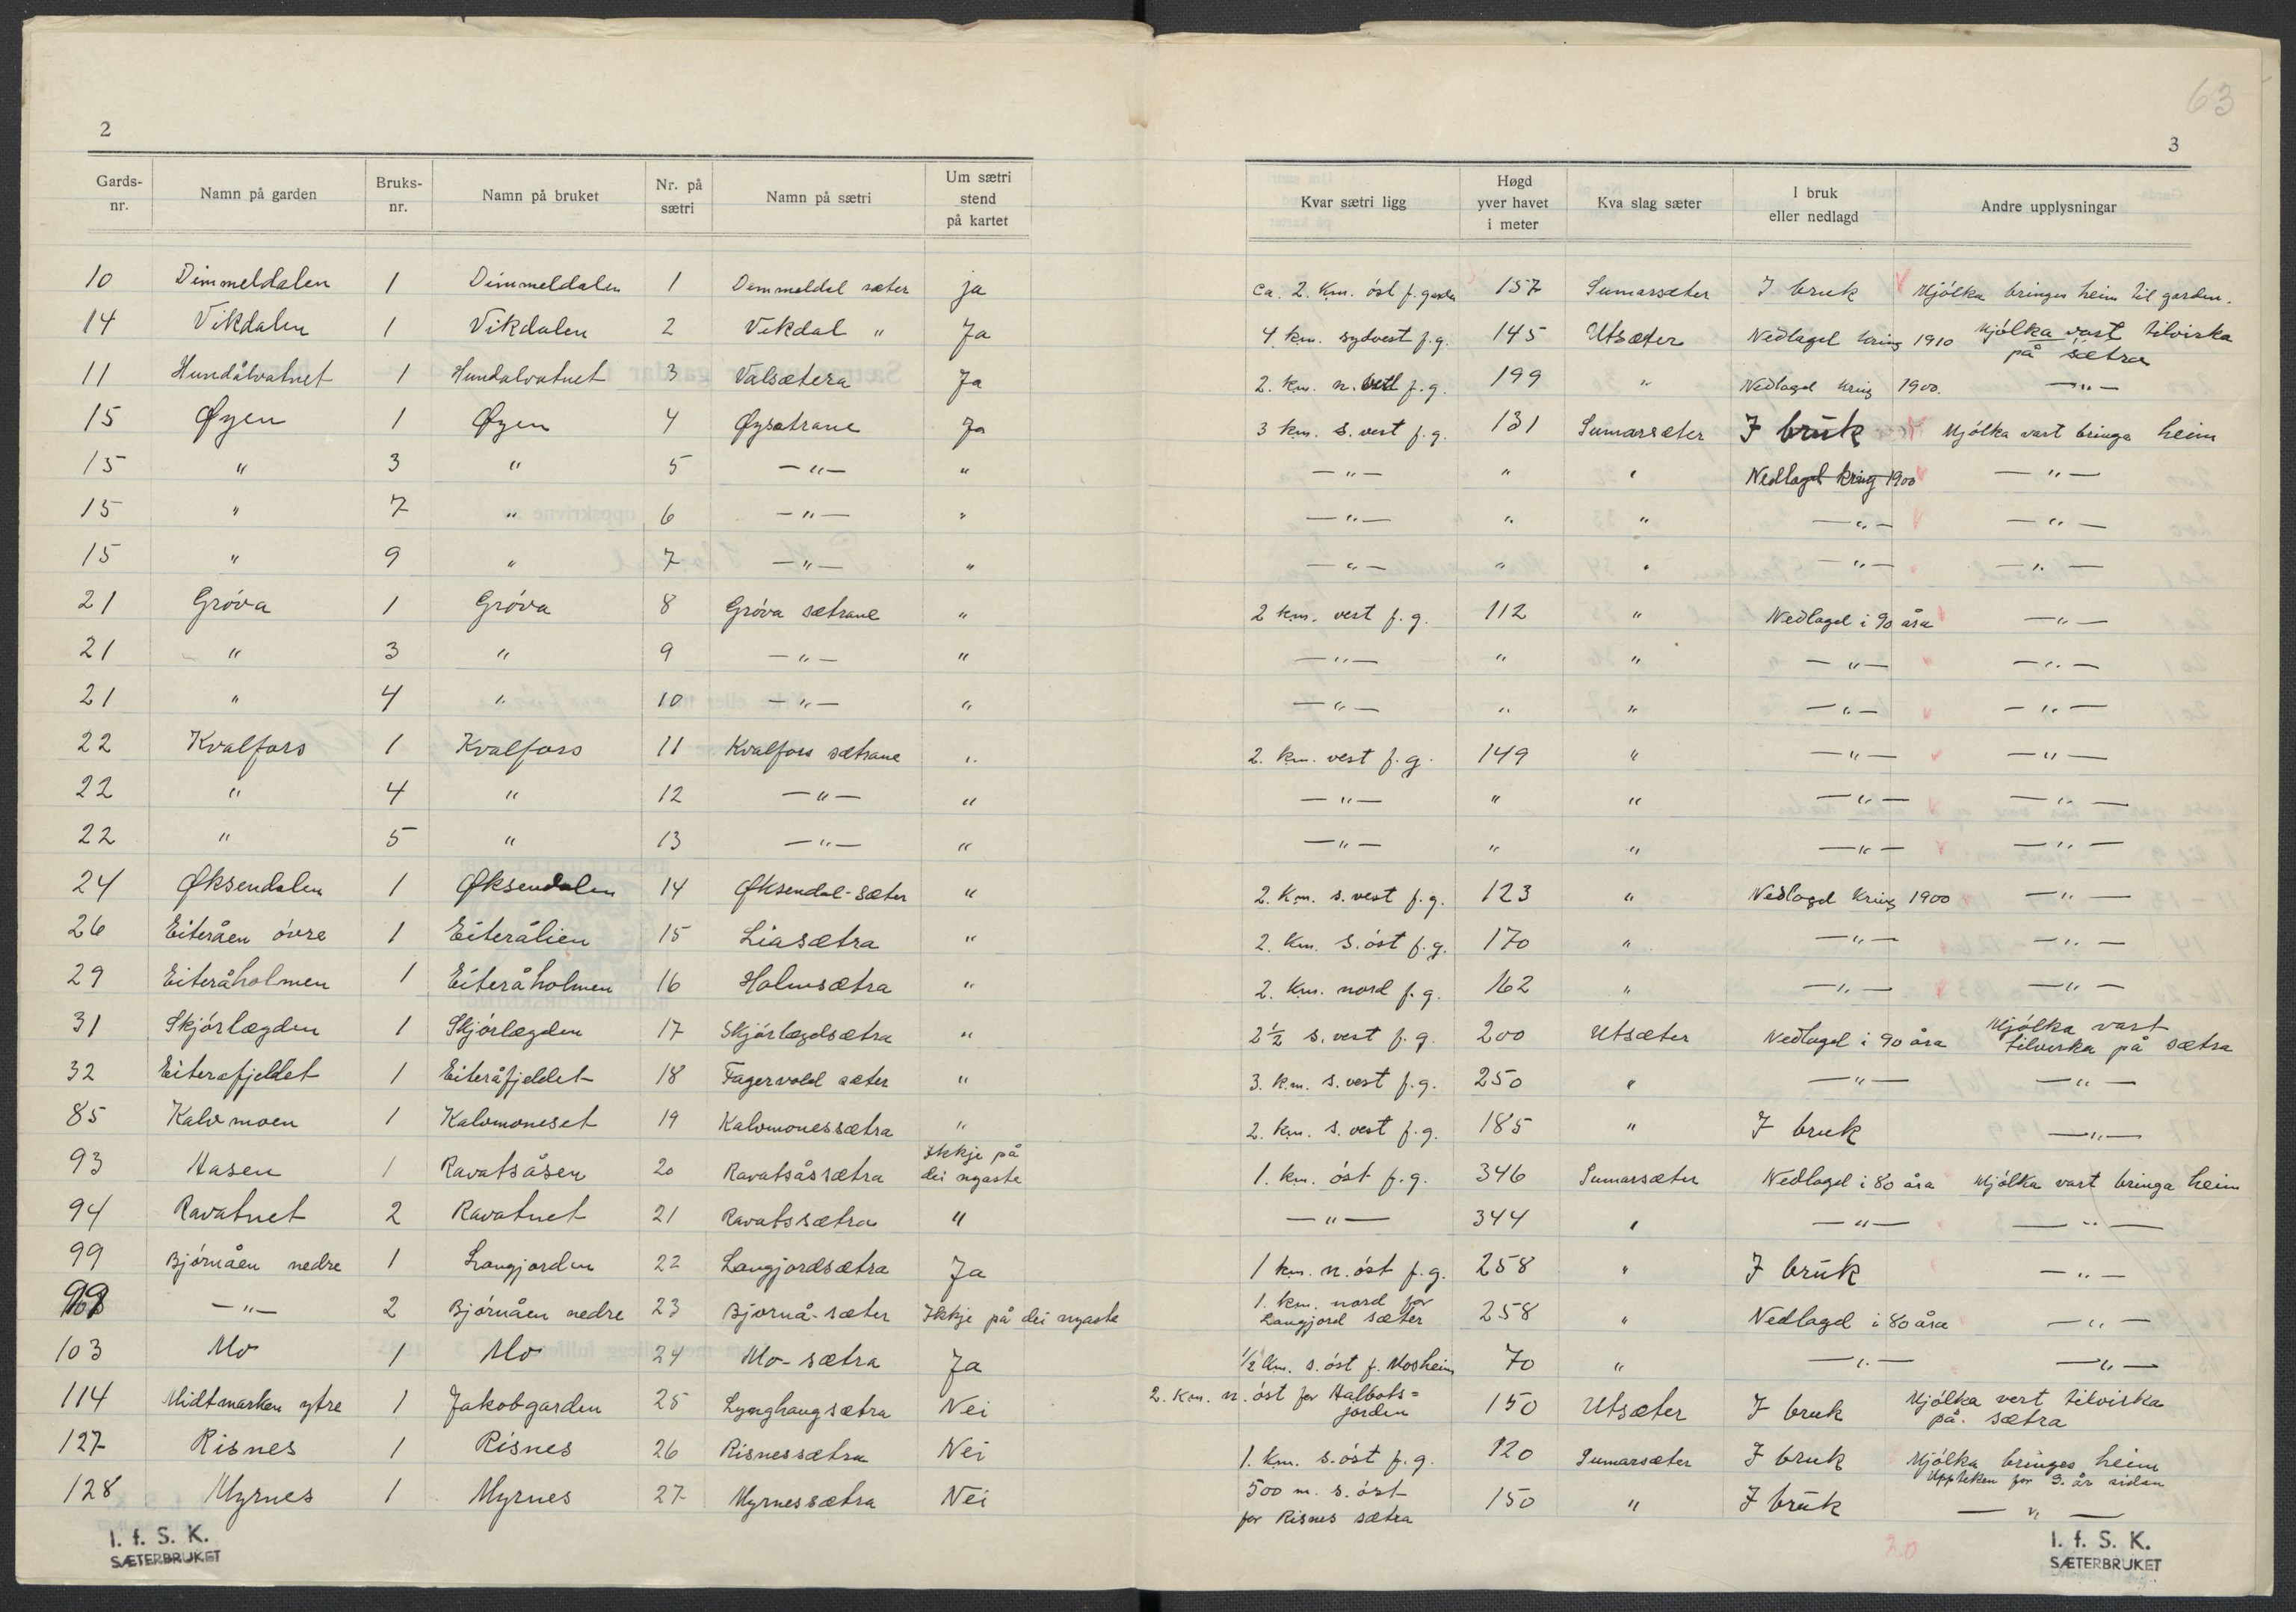 63
2
3
Gards-nr. Namn på garden Bruks-nr. Namn på bruket Nr. på sætri Namn på sætri Um sætri stend på kartet Kvar sætri ligg Høgd yver havet i meter Kva slag sæter I bruk eller nedlagd Andre upplysningar
10 Dimmeldalen 1 Dimmeldalen 1 Dimmeldal sæter ja ca. 2. km. öst f. garden 157 Sumarsæter I bruk Mjölka bringes heim til garden.
14 Vikdalen 1 Vikdalen 2 Vikdal " Ja 4 km. sydvest f.g. 145 Utsæter Nedlagd kring 1910 Mjölka vart tilvirka på sætra
11 Hundålvatnet 1 Hundalvatnet 3 Valsætera Ja 2. km. n. vest f.g. 199 " Nedlagd kring 1900. —"—
15 Øyen 1 Øyen 4 Øysætrane Ja 3 km. s. vest f.g. 131 Sumarsæter I bruk Mjölka vart bringa heim
15 " 3 " 5 —"— " —"— " " Nedlagd kring 1900 —"—
15 " 7 " 6 —"— " —"— " " —"— —"—
15 " 9 " 7 —"— " —"— " " —"— —"—
21 Gröva 1 Gröva 8 Gröva sætrane " 2 km. vest f.g. 112 " Nedlagd i 90 åra —"—
21 " 3 " 9 —"— " —"— " " —"— —"—
21 " 4 " 10 —"— " —"— " " —"— —"—
22 Kvalfors 1 Kvalfors 11 Kvalfors sætrane " 2. km. vest f.g. 149 " —"— —"—
22 " 4 " 12 —"— " —"— " " —"— —"—
22 " 5 " 13 —"— " —"— " " —"— —"—
24 Øksendalen 1 Øksendalen 14 Øksendal-sæter " 2. km. s. vest f.g. 123 " Nedlagd kring 1900 —"—
26 Eiteråen övre 1 Eiterålien 15 Liasætra " 2. km. s. öst f.g. 170 " —"— —"—
29 Eiteråholmen 1 Eiteråholmen 16 Holmsætra " 2. km. nord f.g. 162 " —"— —"—
31 Skjörlægden 1 Skjörlægden 17 Skjörlægdsætra " 2½ s. vest f.g. 200 Utsæter Nedlagd i 90 åra Mjölka vart tilvirka på sætra
32 Eiterafjeldet 1 Eiteråfjeldet 18 Fagervold sæter " 3. km. s. vest f.g. 250 " —"— —"—
85 Kalvmoen 1 Kalvmoneset 19 Kalvmonessætra " 2. km. s. vest f.g. 185 " I bruk —"—
93 Aasen 1 Ravatsåsen 20 Ravatsåssætra Ikkje på dei nyaste 1. km. öst f.g. 346 Sumarsæter Nedlagd i 80 åra Mjölka vart bringa heim
94 Ravatnet 2 Ravatnet 21 Ravatssætra " —"— 344 " —"— —"—
99 Björnåen nedre 1 Langjorden 22 Langjordsætra Ja 1 km. n. öst f.g. 258 " I bruk —"—
99 —"— 2 Björnåen nedre 23 Bjornå-sæter Ikkje på dei nyaste 1. km. nord for Langjord sæter 258 " Nedlagd i 80 åra —"—
103 Mo 1 Mo 24 Mo-sætra Ja ½ km. s. öst f. Mosheim 70 " —"— —"—
114 Midtmarken ytre 1 Jakobgarden 25 Lynghaugsætra Nei 2. km. n. öst for Halbots=jorden 150 Utsæter I bruk Mjölka vert tilvirka på sætra
127 Risnes 1 Risnes 26 Risnessætra Nei 1. km. s. öst f.g. 120 Sumarsæter I bruk Mjölka bringes heim
128 Myrnes 1 Myrnes 27 Myrnessætra Nei 500 m. s. öst for Risnes sætra 150 " I bruk Uppteken for 3. år sidan —"—
20
I. f. S. K.
SÆTERBRUKET
I. f. S. K.
SÆTERBRUKET